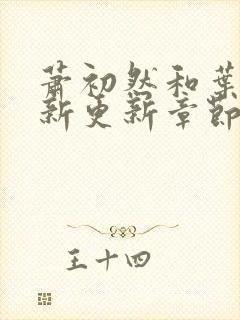 萧初然和叶
新更新章节
王十四